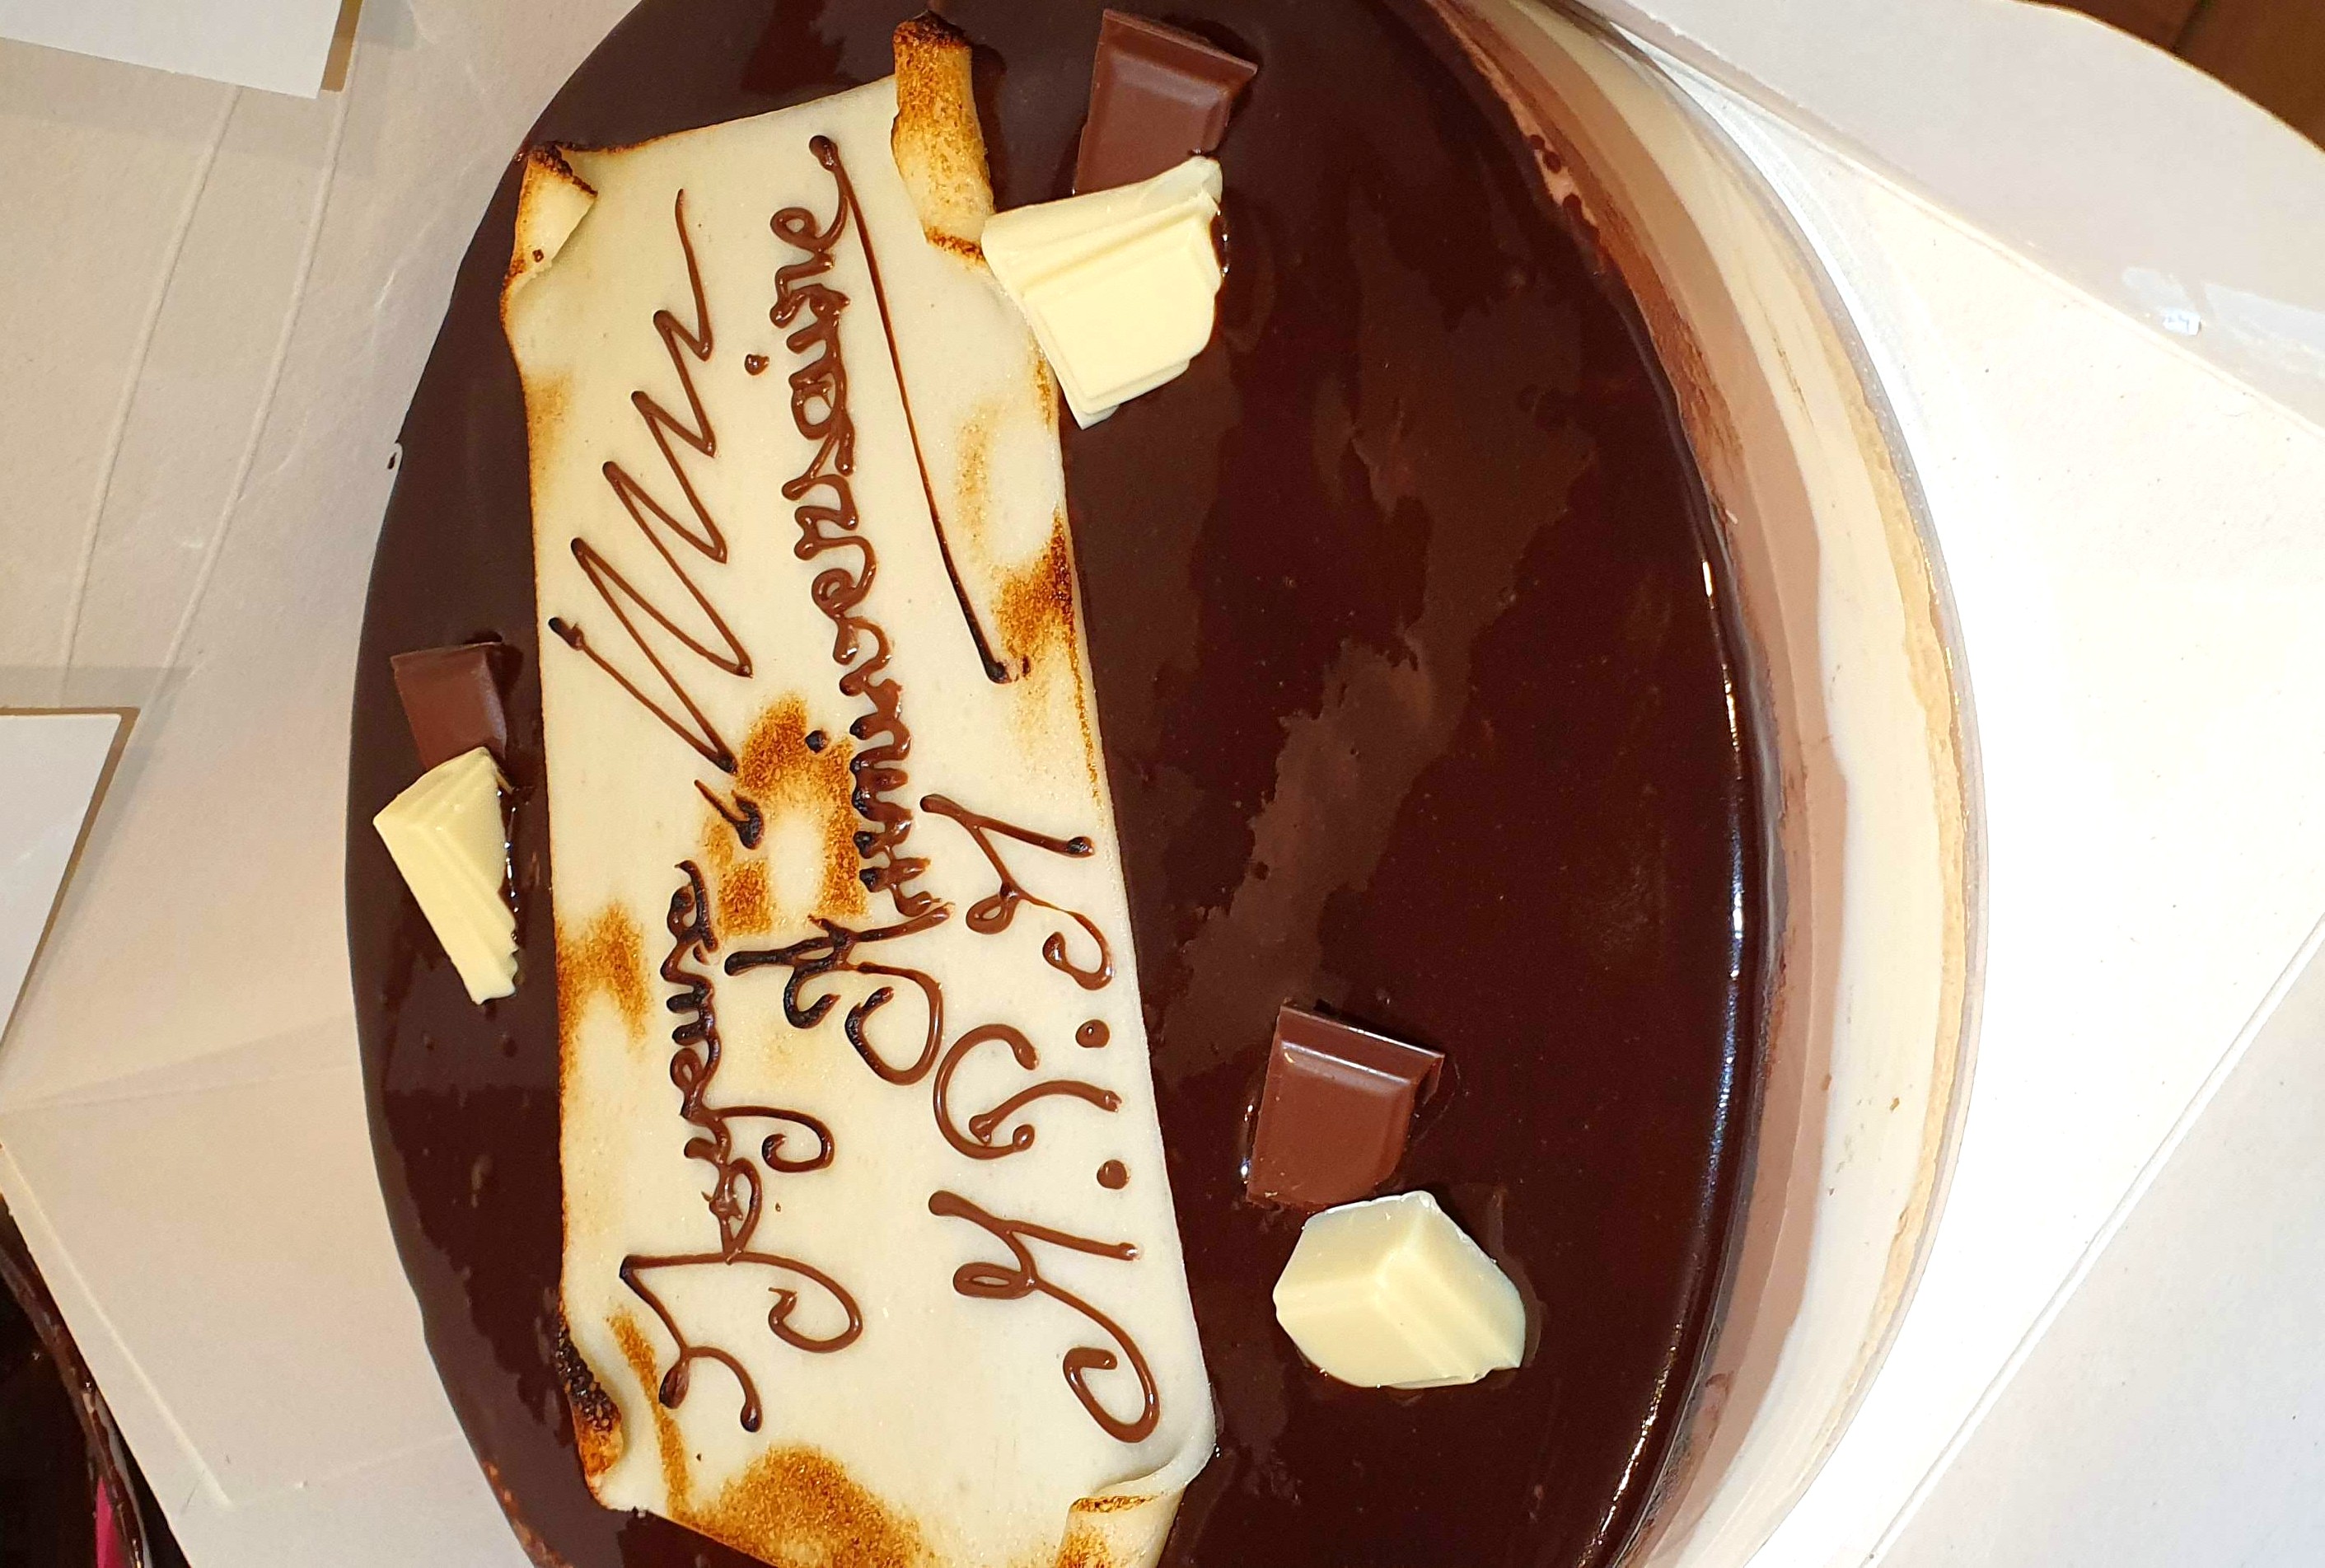 Joyeuse
Anniversaire
M.P.M